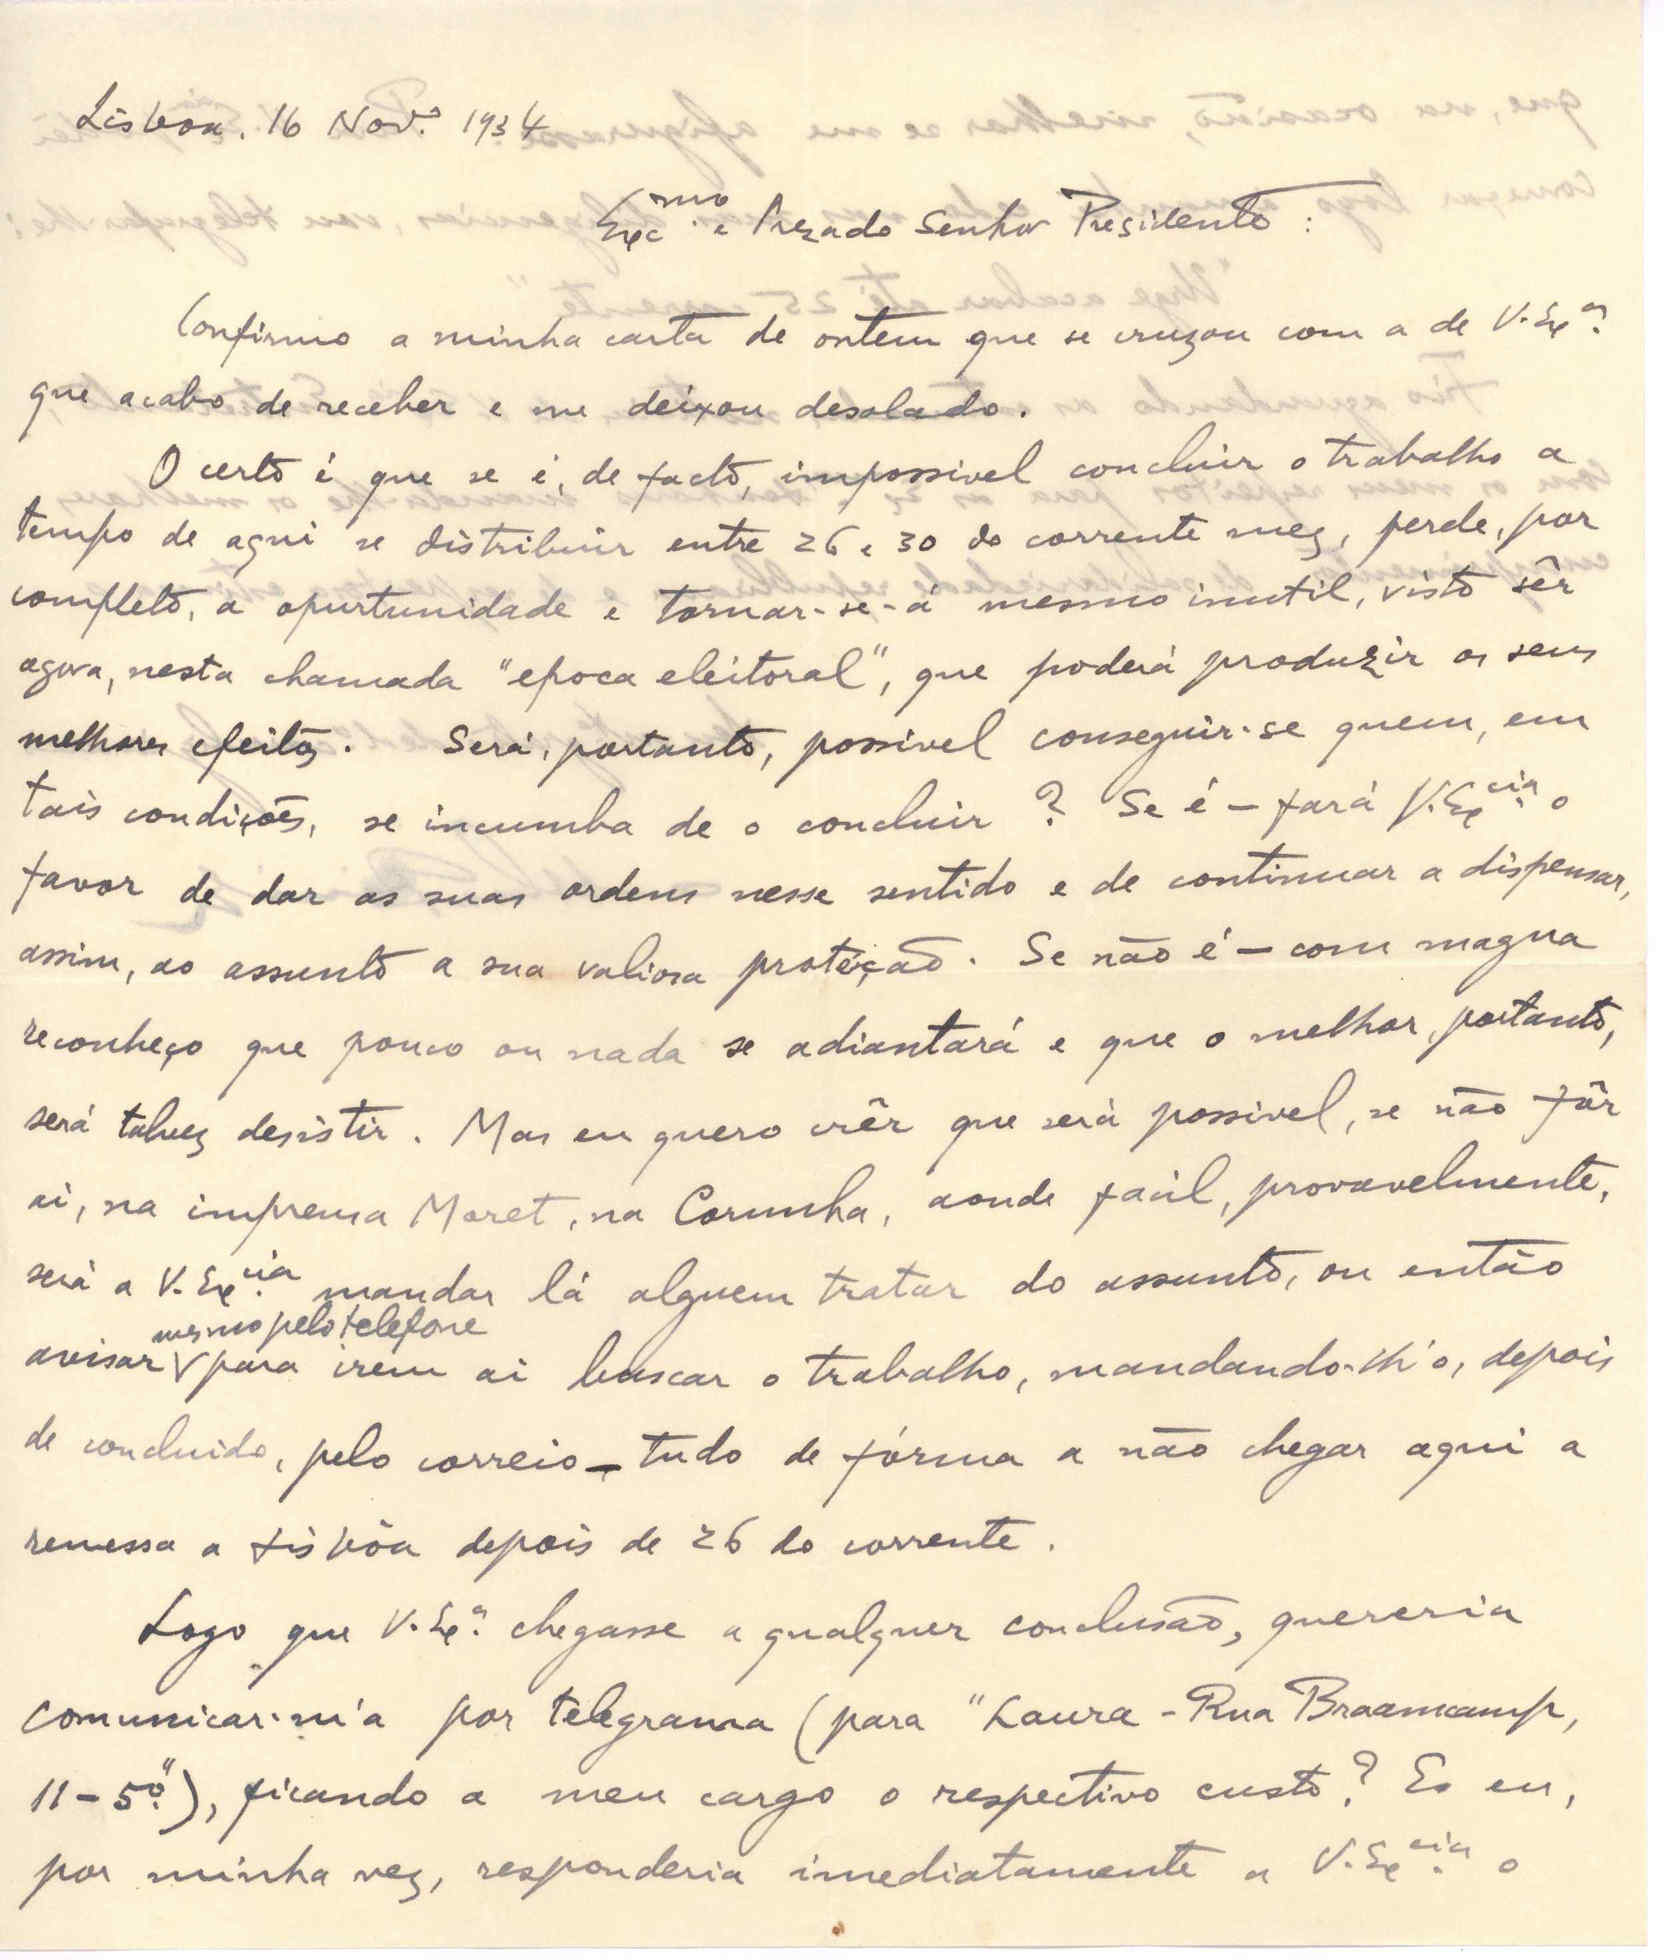 Lisboa. 16 Nov.º 1934
Exc.mo e Prezado Senhor Presidente :
Confirmo a minha carta de ontem que se cruzou com a de V. Ex.ª
que acabo de receber e me deixou desolado.
O certo é que se é, de facto, impossivel concluir o trabalho a
tempo de aqui se distribuir entre 26 e 30 do corrente mez, perde, por
completo, a opurtunidade e tornar-se-á mesmo inutil, visto sêr
agora, nesta chamada "epoca eleitoral", que poderá produzir os seus
melhores efeitos. Será, portanto, possivel conseguir-se quem, em
tais condições, se incumba de o concluir ? Se é — fará V. Ex.cia o
favor de dar as suas ordens nesse sentido e de continuar a dispensar,
assim, ao assunto a sua valiosa proteição. Se não é — com magua
reconheço que pouco ou nada se adiantará e que o melhor, portanto,
será talvez desistir. Mas eu quero crêr que será possivel, se não fôr
ai, na imprensa Moret, na Corunha, aonde facil, provavelmente,
será a V. Ex.cia mandar lá alguem tratar do assunto, ou então
mesmo pelo telefone
avisar para irem ai buscar o trabalho, mandando-lh'o, depois
de concluido, pelo correio — tudo de fórma a não chegar aqui a
remessa a Lisbôa depois de 26 do corrente.
Logo que V. Ex.ª chegasse a qualquer conclusão, quereria
comunicar-m'a por telegrama (para "Laura - Rua Braamcamp,
11 - 5.º"), ficando a meu cargo o respectivo custo? Es eu,
por minha vez, responderia imediatamente a V. Ex.cia o